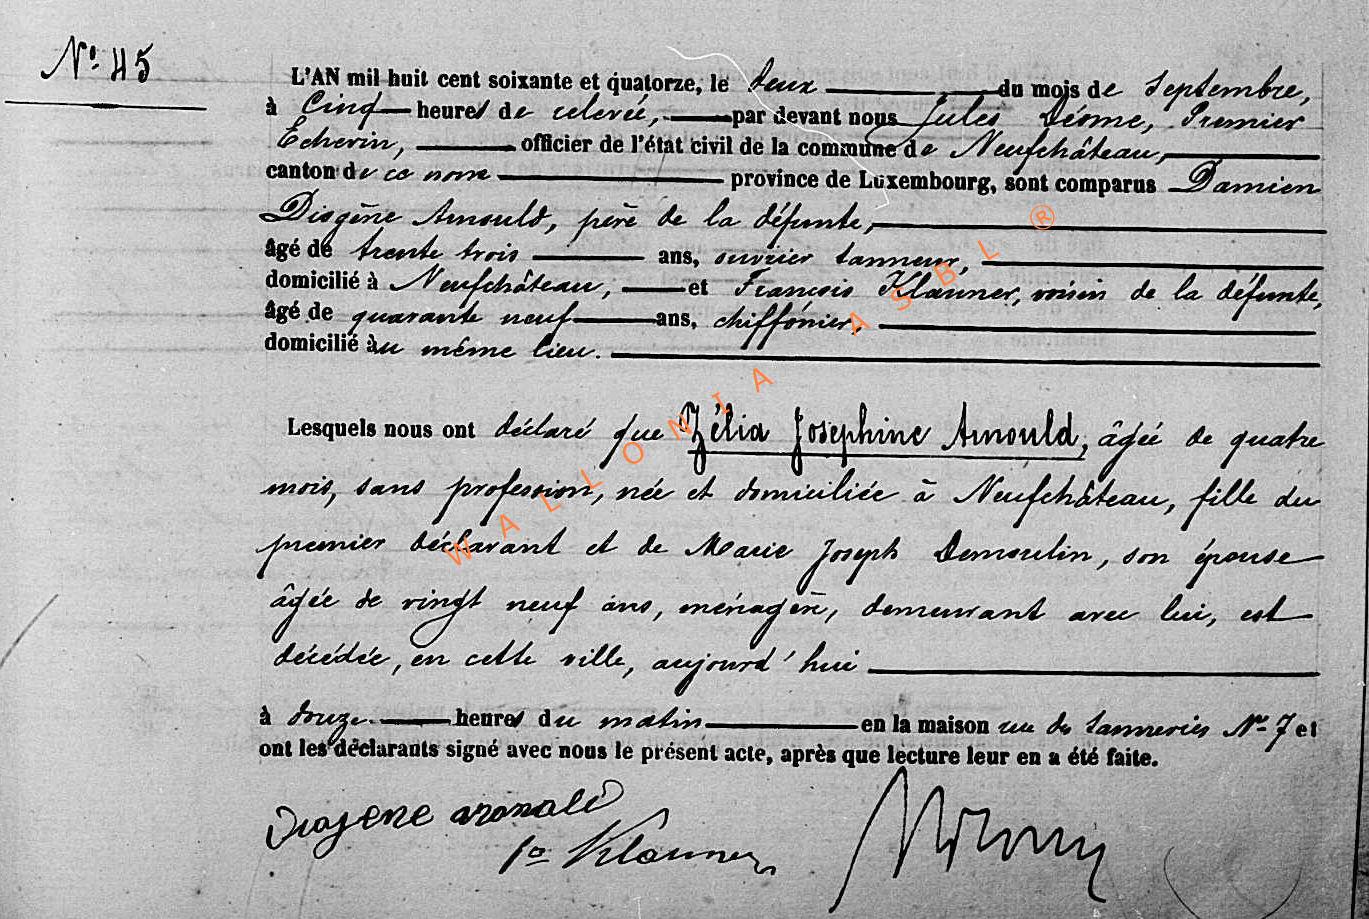 N° 45
L'AN mil huit cent soixante et quatorze, le deux du mois de Septembre,
à cinq heures de relevée, par devant nous Jules Déome, Premier
Echevin, officier de l'état civil de la commune de Neufchâteau,
canton de ce nom province de Luxembourg, sont comparus Damien
Diogène Arnould, père de la défunte,
âgé de trente trois ans, ouvrier tanneur,
domicilié à Neufchâteau, et François Klauner, voisin de la défunte,
âgé de quarante neuf ans, chiffonier,
domicilié au même lieu.
Lesquels nous ont déclaré que Zélia Josephine Arnould, âgée de quatre
mois, sans profession, née et domiciliée à Neufchâteau, fille du
premier déclarant et de Marie Joseph Demoulin, son épouse
âgée de vingt neuf ans, ménagère, demeurant avec lui, est
décédée, en cette ville, aujourd'hui
à douze heures du matin en la maison rue des tanneries N° 7 et
ont les déclarants signé avec nous le présent acte, après que lecture leur en a été faite.
Diogene arnould
Klauner
WALLONIA ASBL ®